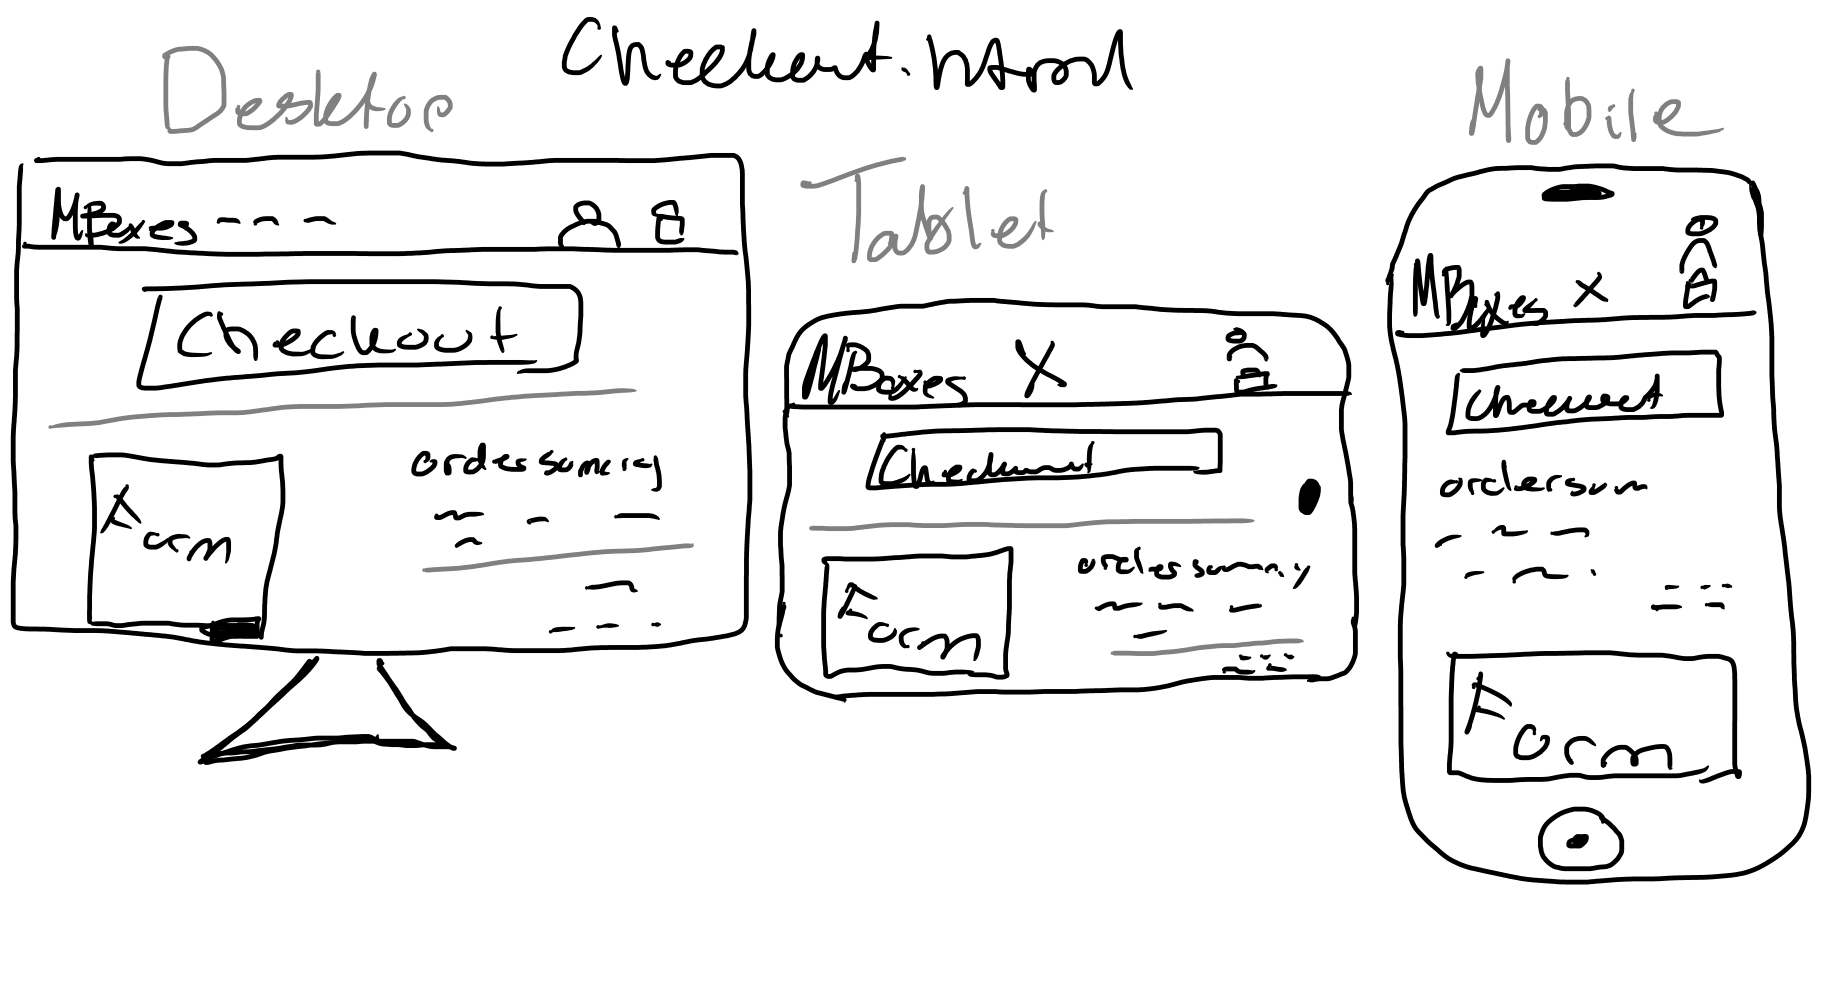 Checkout.html
Desktop
MBoxes
Checkout
Form
order sumary
Tablet
MBoxes X
Checkout
Form
order summry
Mobile
MBoxes X
Checkout
order sum
Form